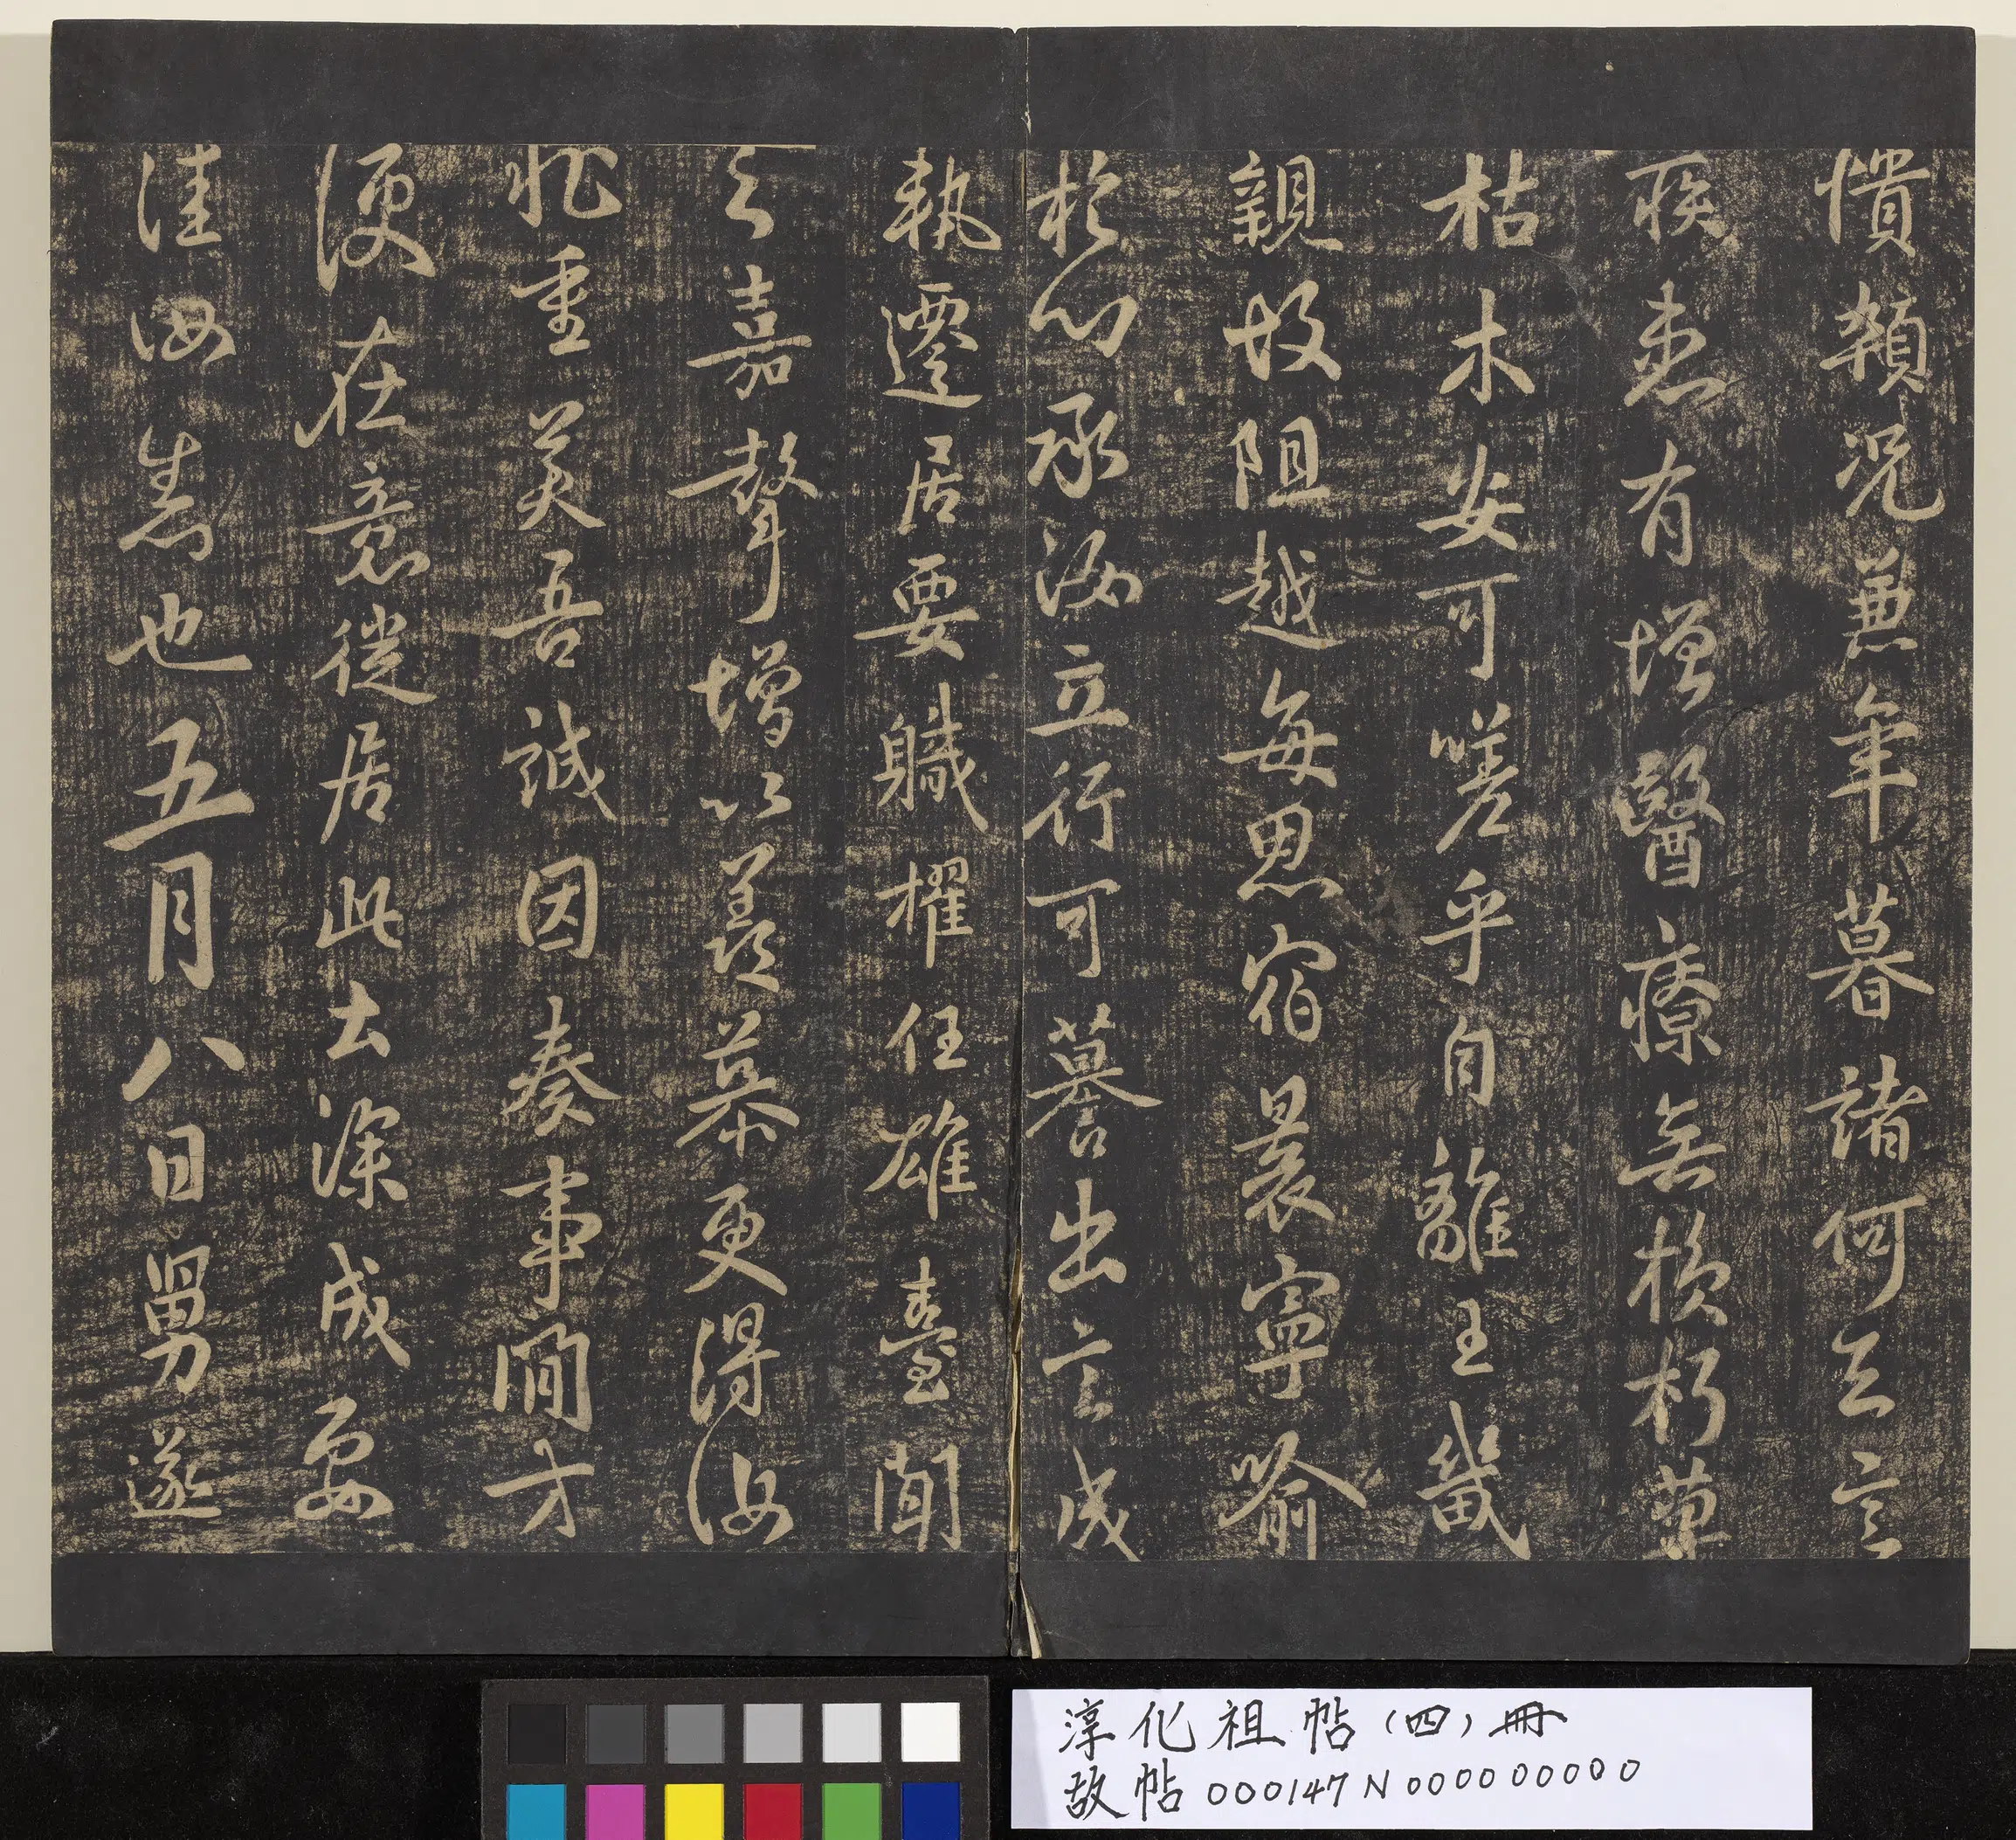 憒頪況兼年暮諸何足言
疾患有增醫療無損朽草
枯木安可嗟乎自離王畿
親故阻越每思宿晨寧喻
於心承汝立行可謩出言成
執遷居要職擢任雄臺聞
之嘉聲增以羨慕更得汝
狀重美吾誠因奏事間方
便在意從居此去深成要
佳汝悉也五月八日舅遂
淳化祖帖(四)冊
故帖000147N000000000